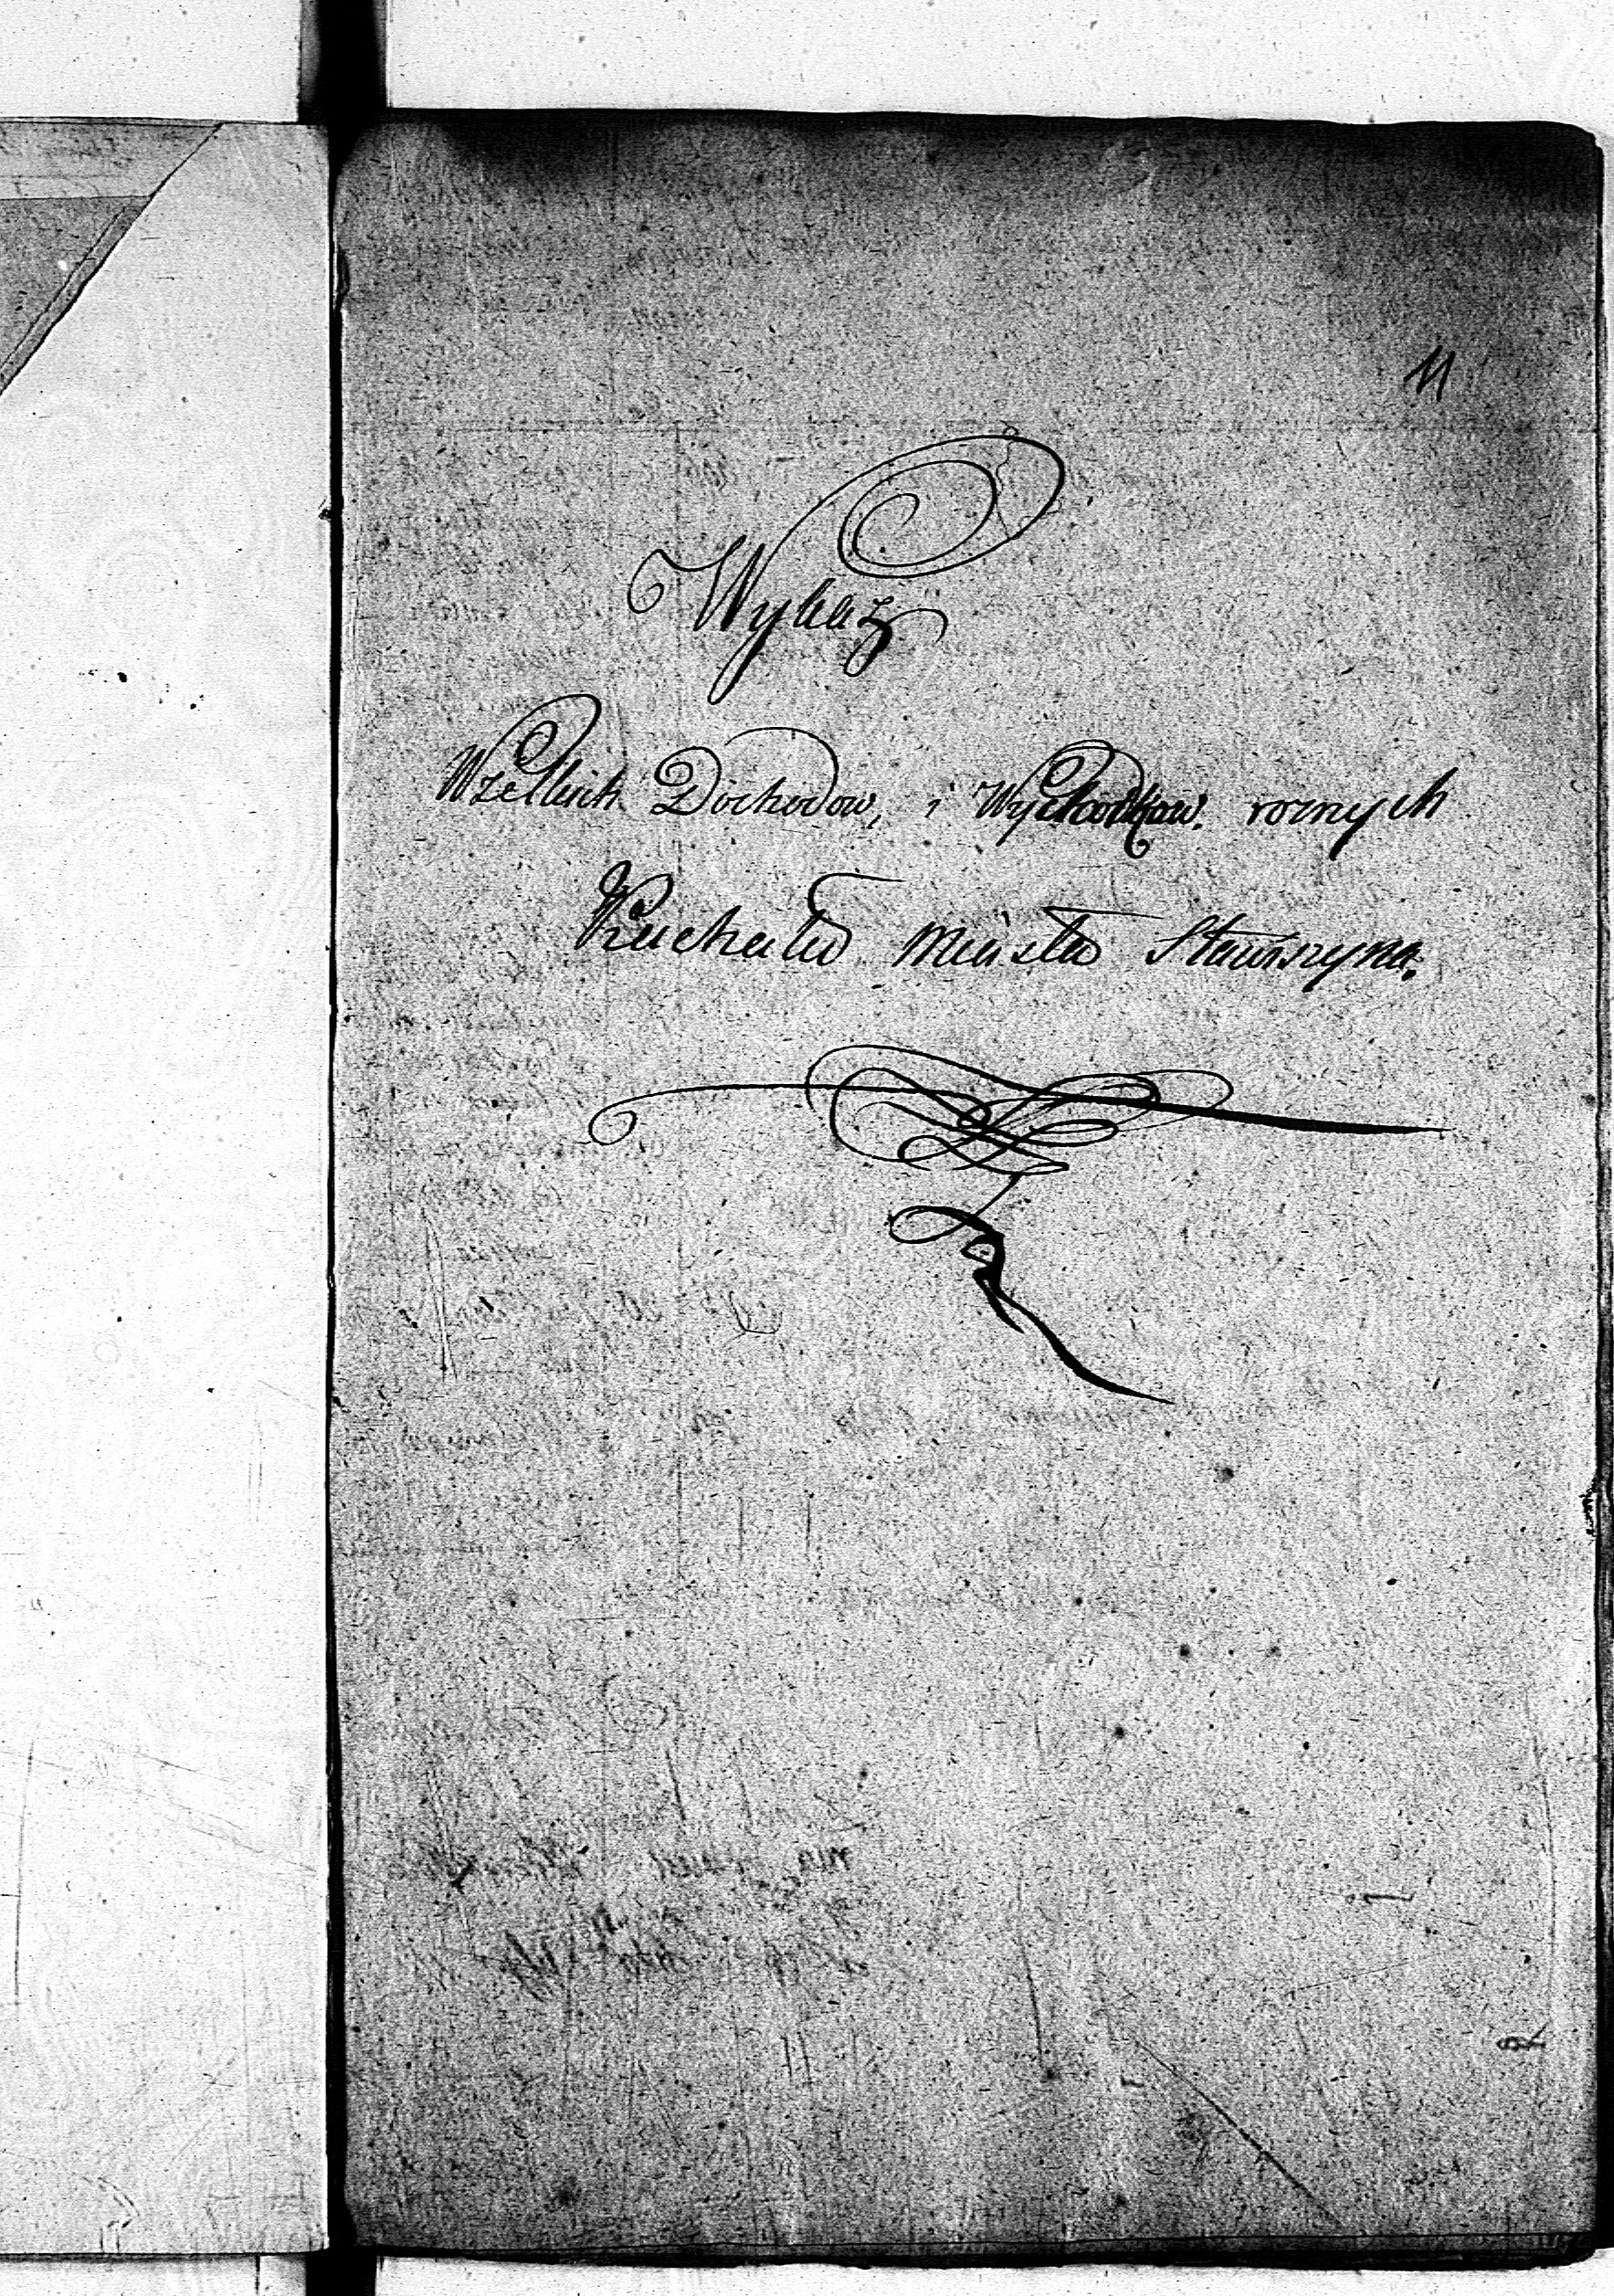 11
Wykaz
Wszelkich Dochodow, i Wychodkow. rocznych
Kuchalu Miasta Stawiszyna.